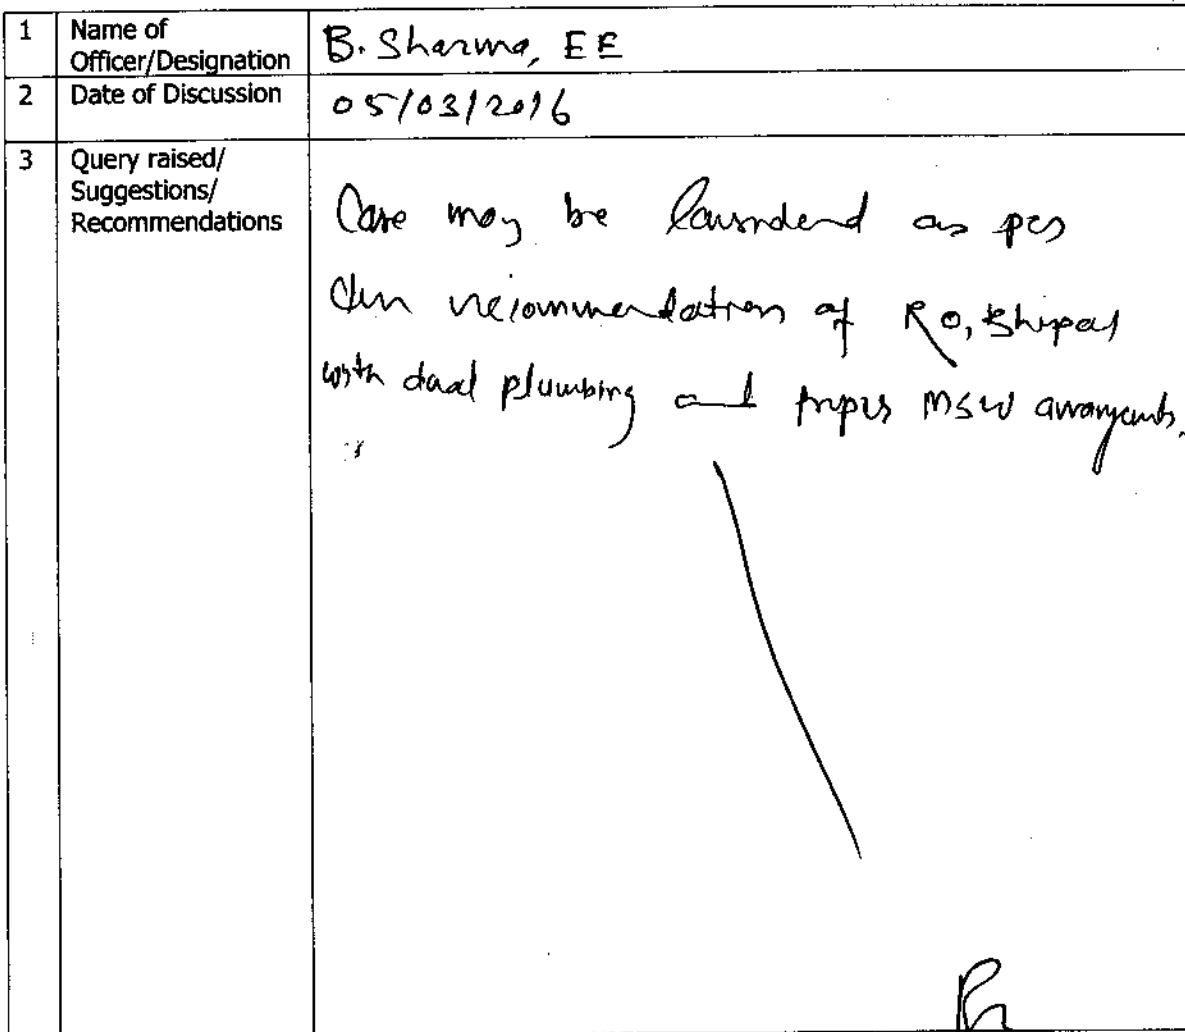 1 Name of Officer/Designation B. Sharma, EE
2 Date of Discussion 05/03/2016
3 Query raised/
Suggestions/
Recommendations
Case may be considered as per
the recommendation of RO, Bhopal
with dual plumbing and proper MSW arrangements.